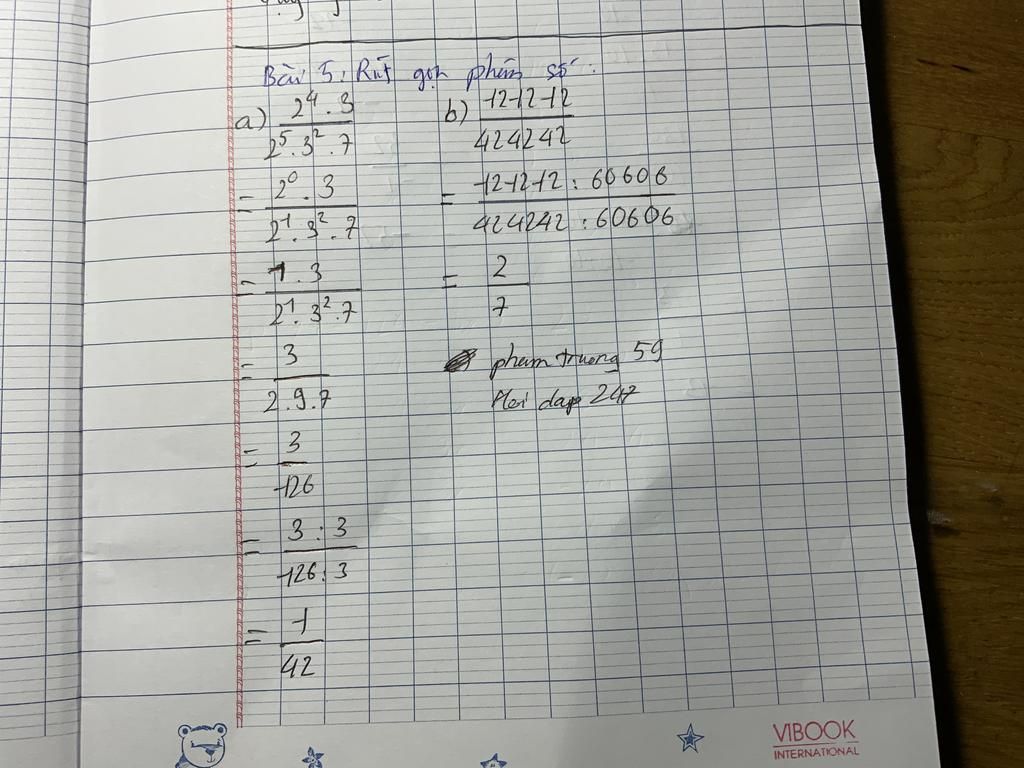 Bài 5: Rút gọn phân số:
a) 2⁴ . 3 / 2⁵ . 3² . 7
= 2⁰ . 3 / 2¹ . 3² . 7
= 1 . 3 / 2¹ . 3² . 7
= 3 / 2 . 9 . 7
= 3 / 126
= 3 : 3 / 126 : 3
= 1 / 42
b) 121212 / 424242
= 121212 : 60606 / 424242 : 60606
= 2 / 7
pham truong 59
Hoi dap 247
VIBOOK
INTERNATIONAL